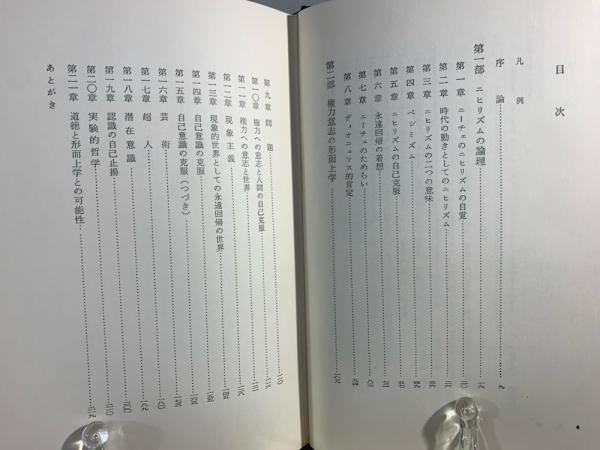 目次
凡例
序論
第一部 ニヒリズムの論理
第一章 ニーチェのニヒリズムの自覚
第二章 時代の動きとしてのニヒリズム
第三章 ニヒリズムの二つの意味
第四章 ペシミズム
第五章 ニヒリズムの自己克服
第六章 永遠回帰の着想
第七章 ニーチェのためらい
第八章 ディオニュソス的肯定
第二部 権力意志の形而上学
4
第九章 問題
第一〇章 権力への意志と人間の自己克服
第一一章 権力への意志と世界
第一二章 現象主義
第一三章 現象的世界としての永遠回帰の世界
第一四章 自己意識の克服
第一五章 自己意識の克服(つづき)
第一六章 芸術
第一七章 超人
第一八章 潜在意識
第一九章 認識の自己止揚
第二〇章 実験的哲学
第二一章 道徳と形而上学との可能性
あとがき